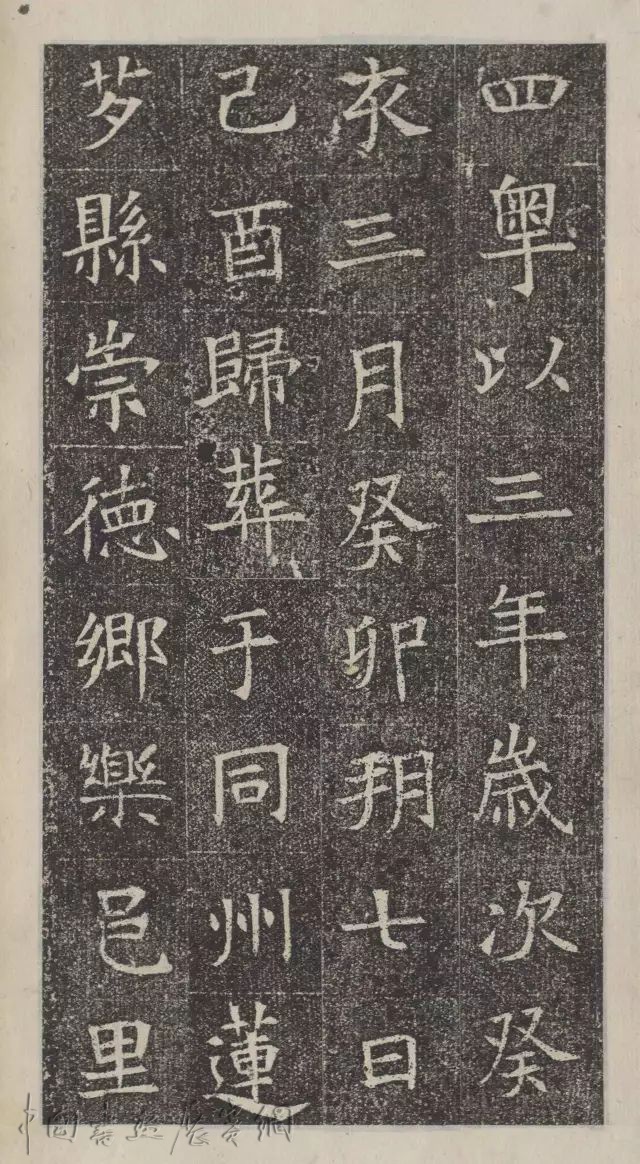 四粤以三年歲次癸
亥三月癸卯朔七日
己酉歸葬于同州蓮
芍縣崇德鄉樂邑里
中国書法展賞網